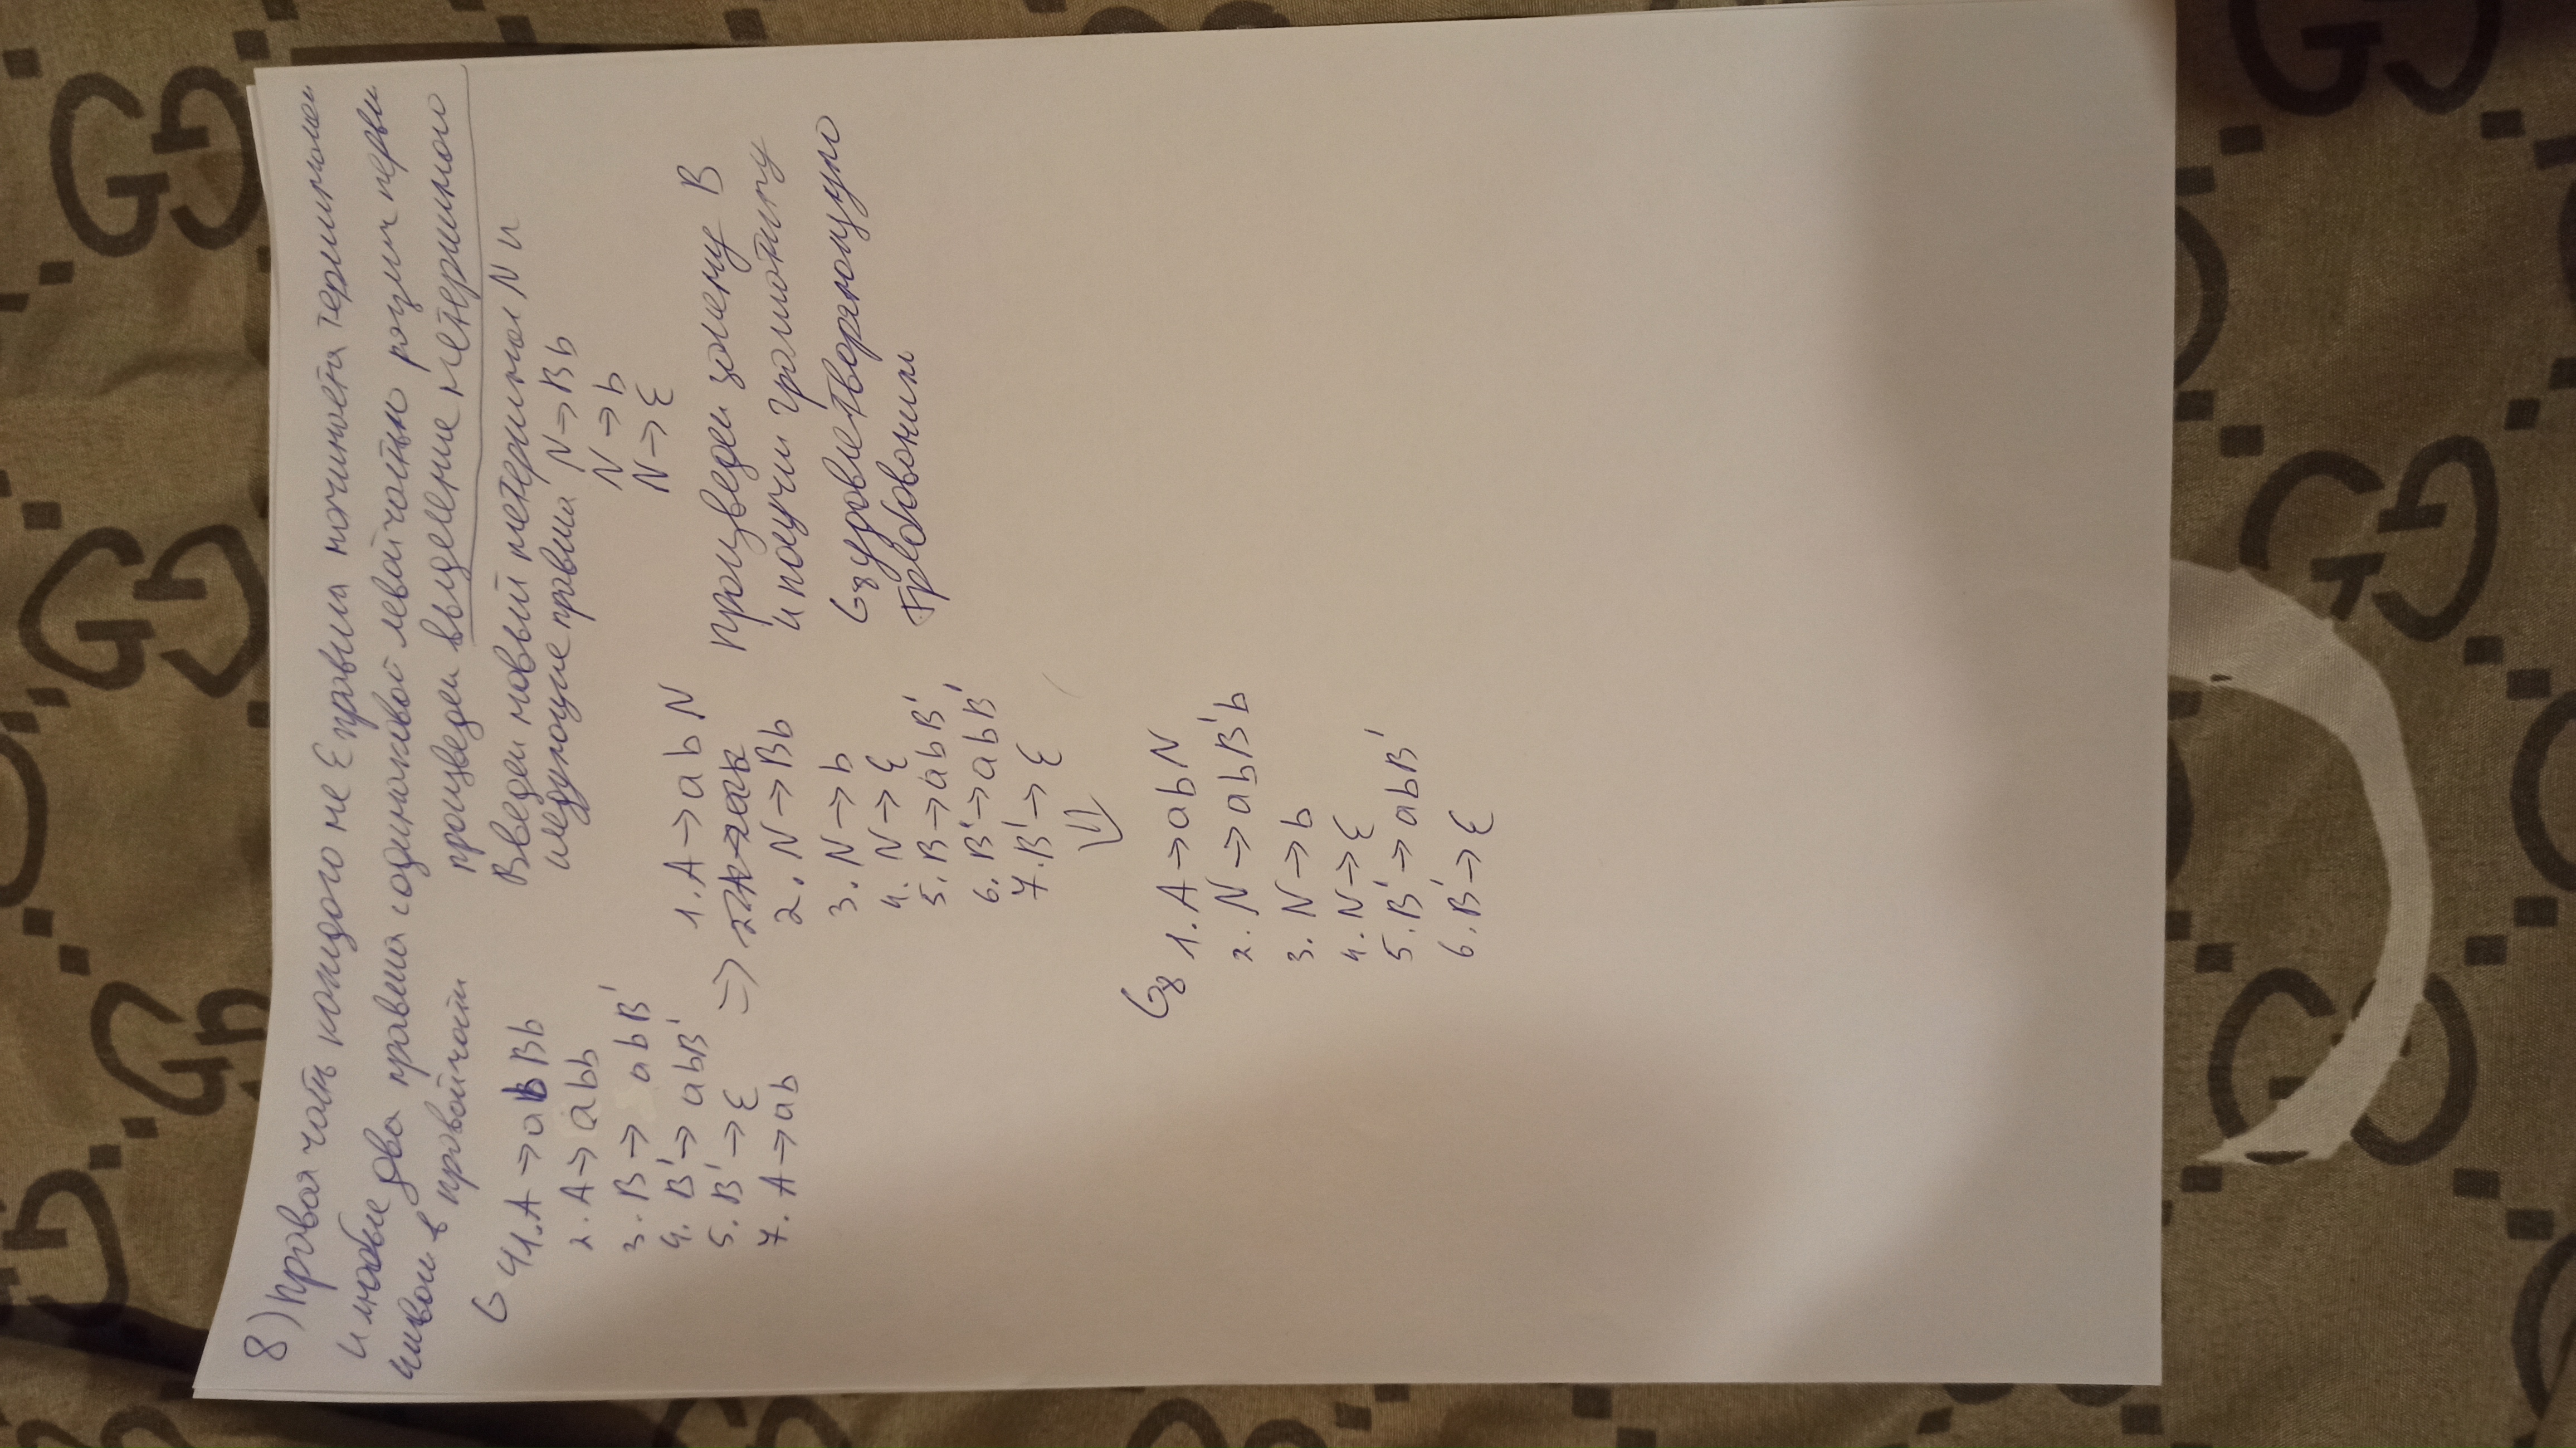 8) правая часть каждого не ε правила начинается терминалом
и любые два правила с одинаковой левой частью различ первы
символом в правой части
произведем выделение нетерминала
Введем новый нетерминал N и
следующие правила N → Bb
N → b
N → ε
G4 1. A → abBb
2. A → abb
3. B → abB'
4. B' → abB'
5. B' → ε
7. A → ab
⇒
1. A → abN
2. N → Bb
3. N → b
4. N → ε
5. B → abB'
6. B' → abB'
7. B' → ε
произведем замену B
и получим грамматику
G8 удовлетворяющую
требованиям
⇓
G8 1. A → abN
2. N → abB'b
3. N → b
4. N → ε
5. B' → abB'
6. B' → ε